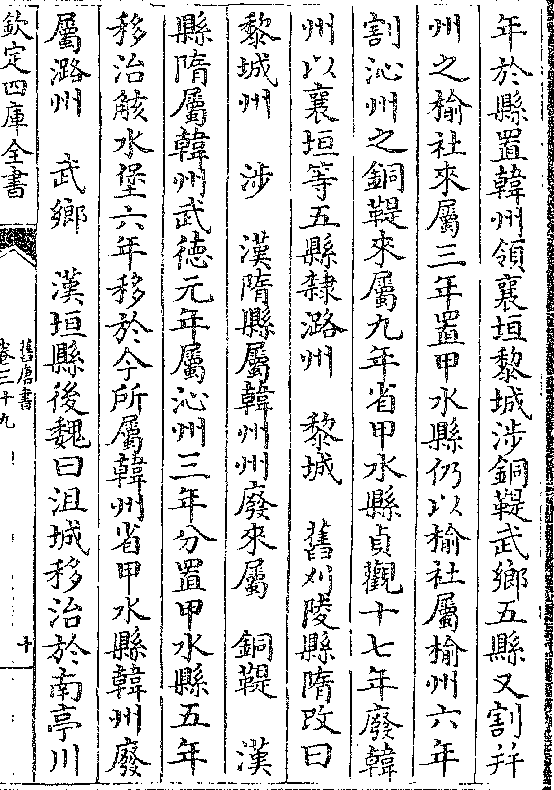 年於縣置韓州領襄垣黎城涉銅鞮武鄉五縣又割并
州之榆社來屬三年置甲水縣仍以榆社屬榆州六年
割沁州之銅鞮來屬九年省甲水縣貞觀十七年廢韓
州以襄垣等五縣隸潞州　黎城　舊刈陵縣隋改曰
黎城州　涉　漢隋縣屬韓州州廢來屬　銅鞮　漢
縣隋屬韓州武德元年屬沁州三年分置甲水縣五年
移治㕢水堡六年移於今所屬韓州省甲水縣韓州廢
屬潞州　武鄉　漢垣縣後魏曰沮城移治於南亭川
欽定四庫全書
舊唐書
卷三十九
十